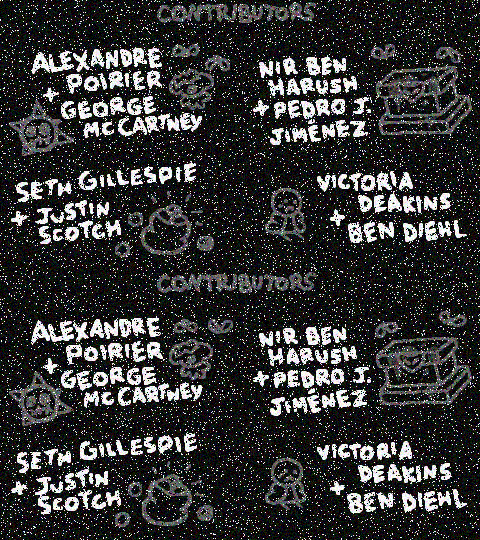 CONTRIBUTORS
ALEXANDRE
POIRIER
+ GEORGE
MCCARTNEY
NIR BEN
HARUSH
+ PEDRO J.
JIMÉNEZ
SETH GILLESPIE
+ JUSTIN
SCOTCH
VICTORIA
DEAKINS
+ BEN DIEHL
CONTRIBUTORS
ALEXANDRE
POIRIER
+ GEORGE
MCCARTNEY
NIR BEN
HARUSH
+ PEDRO J.
JIMÉNEZ
SETH GILLESPIE
+ JUSTIN
SCOTCH
VICTORIA
DEAKINS
+ BEN DIEHL